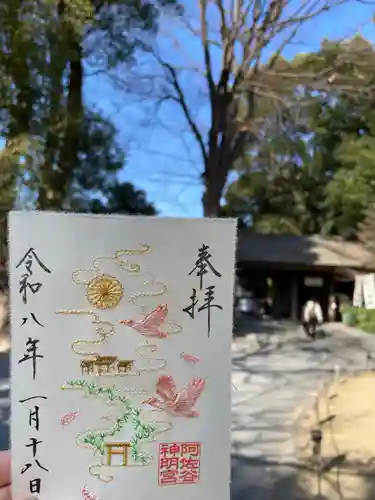 奉拝
令和八年一月十八日
阿佐谷
神明宮